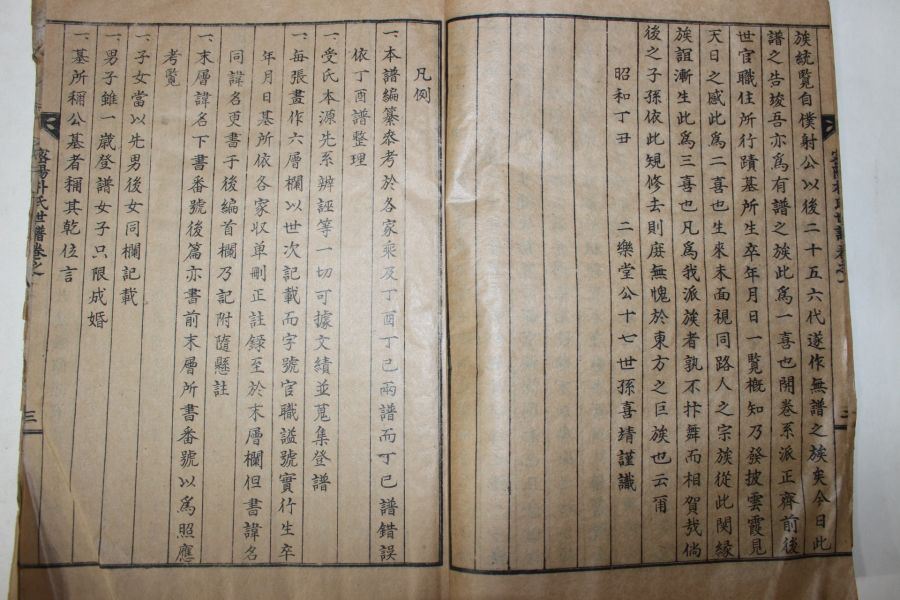 族統覽自僕射公以後二十五六代遂作無譜之族矣今日此
譜之告竣吾亦爲有譜之族此爲一喜也開卷系派正齊前後
世官職住所行蹟墓所生卒年月日一覽概知乃發披雲霞見
天日之感此爲二喜也生來未面視同路人之宗族從此関緣
族誼漸生此爲三喜也凡爲我派族者孰不抃舞而相賀哉倘
後之子孫依此規修去則庶無愧於東方之巨族也云爾
昭和丁丑 二樂堂公十七世孫喜靖謹識
凡例
一、本譜編纂叅考於各家乘及丁酉丁巳兩譜而丁巳譜錯誤
依丁酉譜整理
一、受氏本源先系辨誣等一切可據文績並蒐集登譜
一、每張畫作六層欄以世次記載而字號官職諡號實行生卒
年月日墓所依各家収单刪正註錄至於末層欄但書諱名
同諱名更書于後編首欄乃記附隨懸註
一、末層諱名下書番號後篇亦書前末層所書番號以爲照應
考覽
一、子女當以先男後女同欄記載
一、男子雖一歲登譜女子只限成婚
一、墓所稱公墓者稱其乾位言
密陽朴氏世譜卷之
三